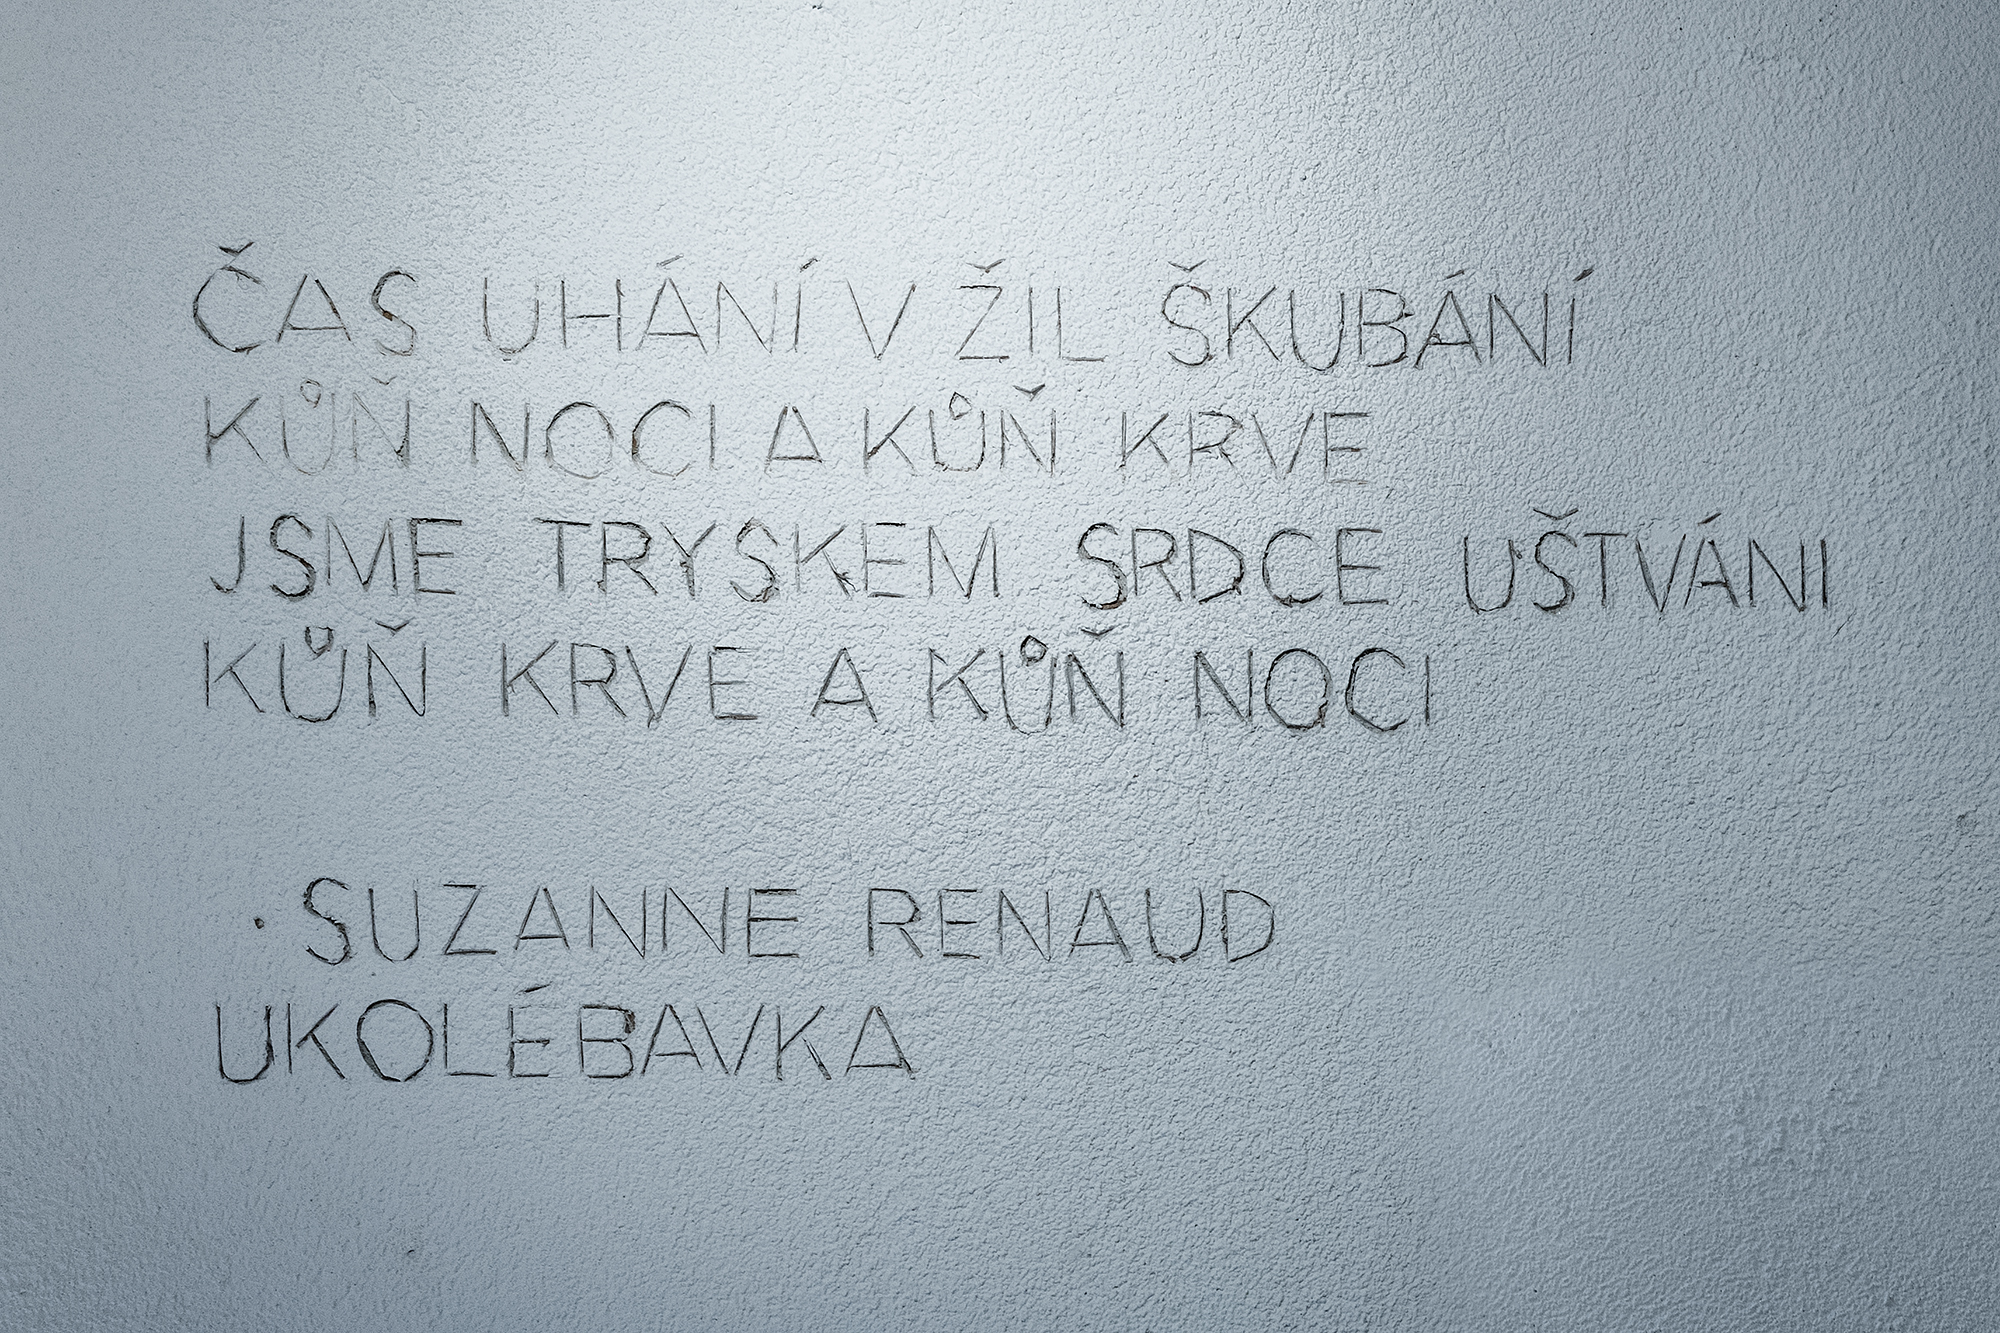 ČAS UHÁNÍ V ŽIL ŠKUBÁNÍ
KŮŇ NOCI A KŮŇ KRVE
JSME TRYSKEM SRDCE UŠTVÁNI
KŮŇ KRVE A KŮŇ NOCI
· SUZANNE RENAUD
UKOLÉBAVKA